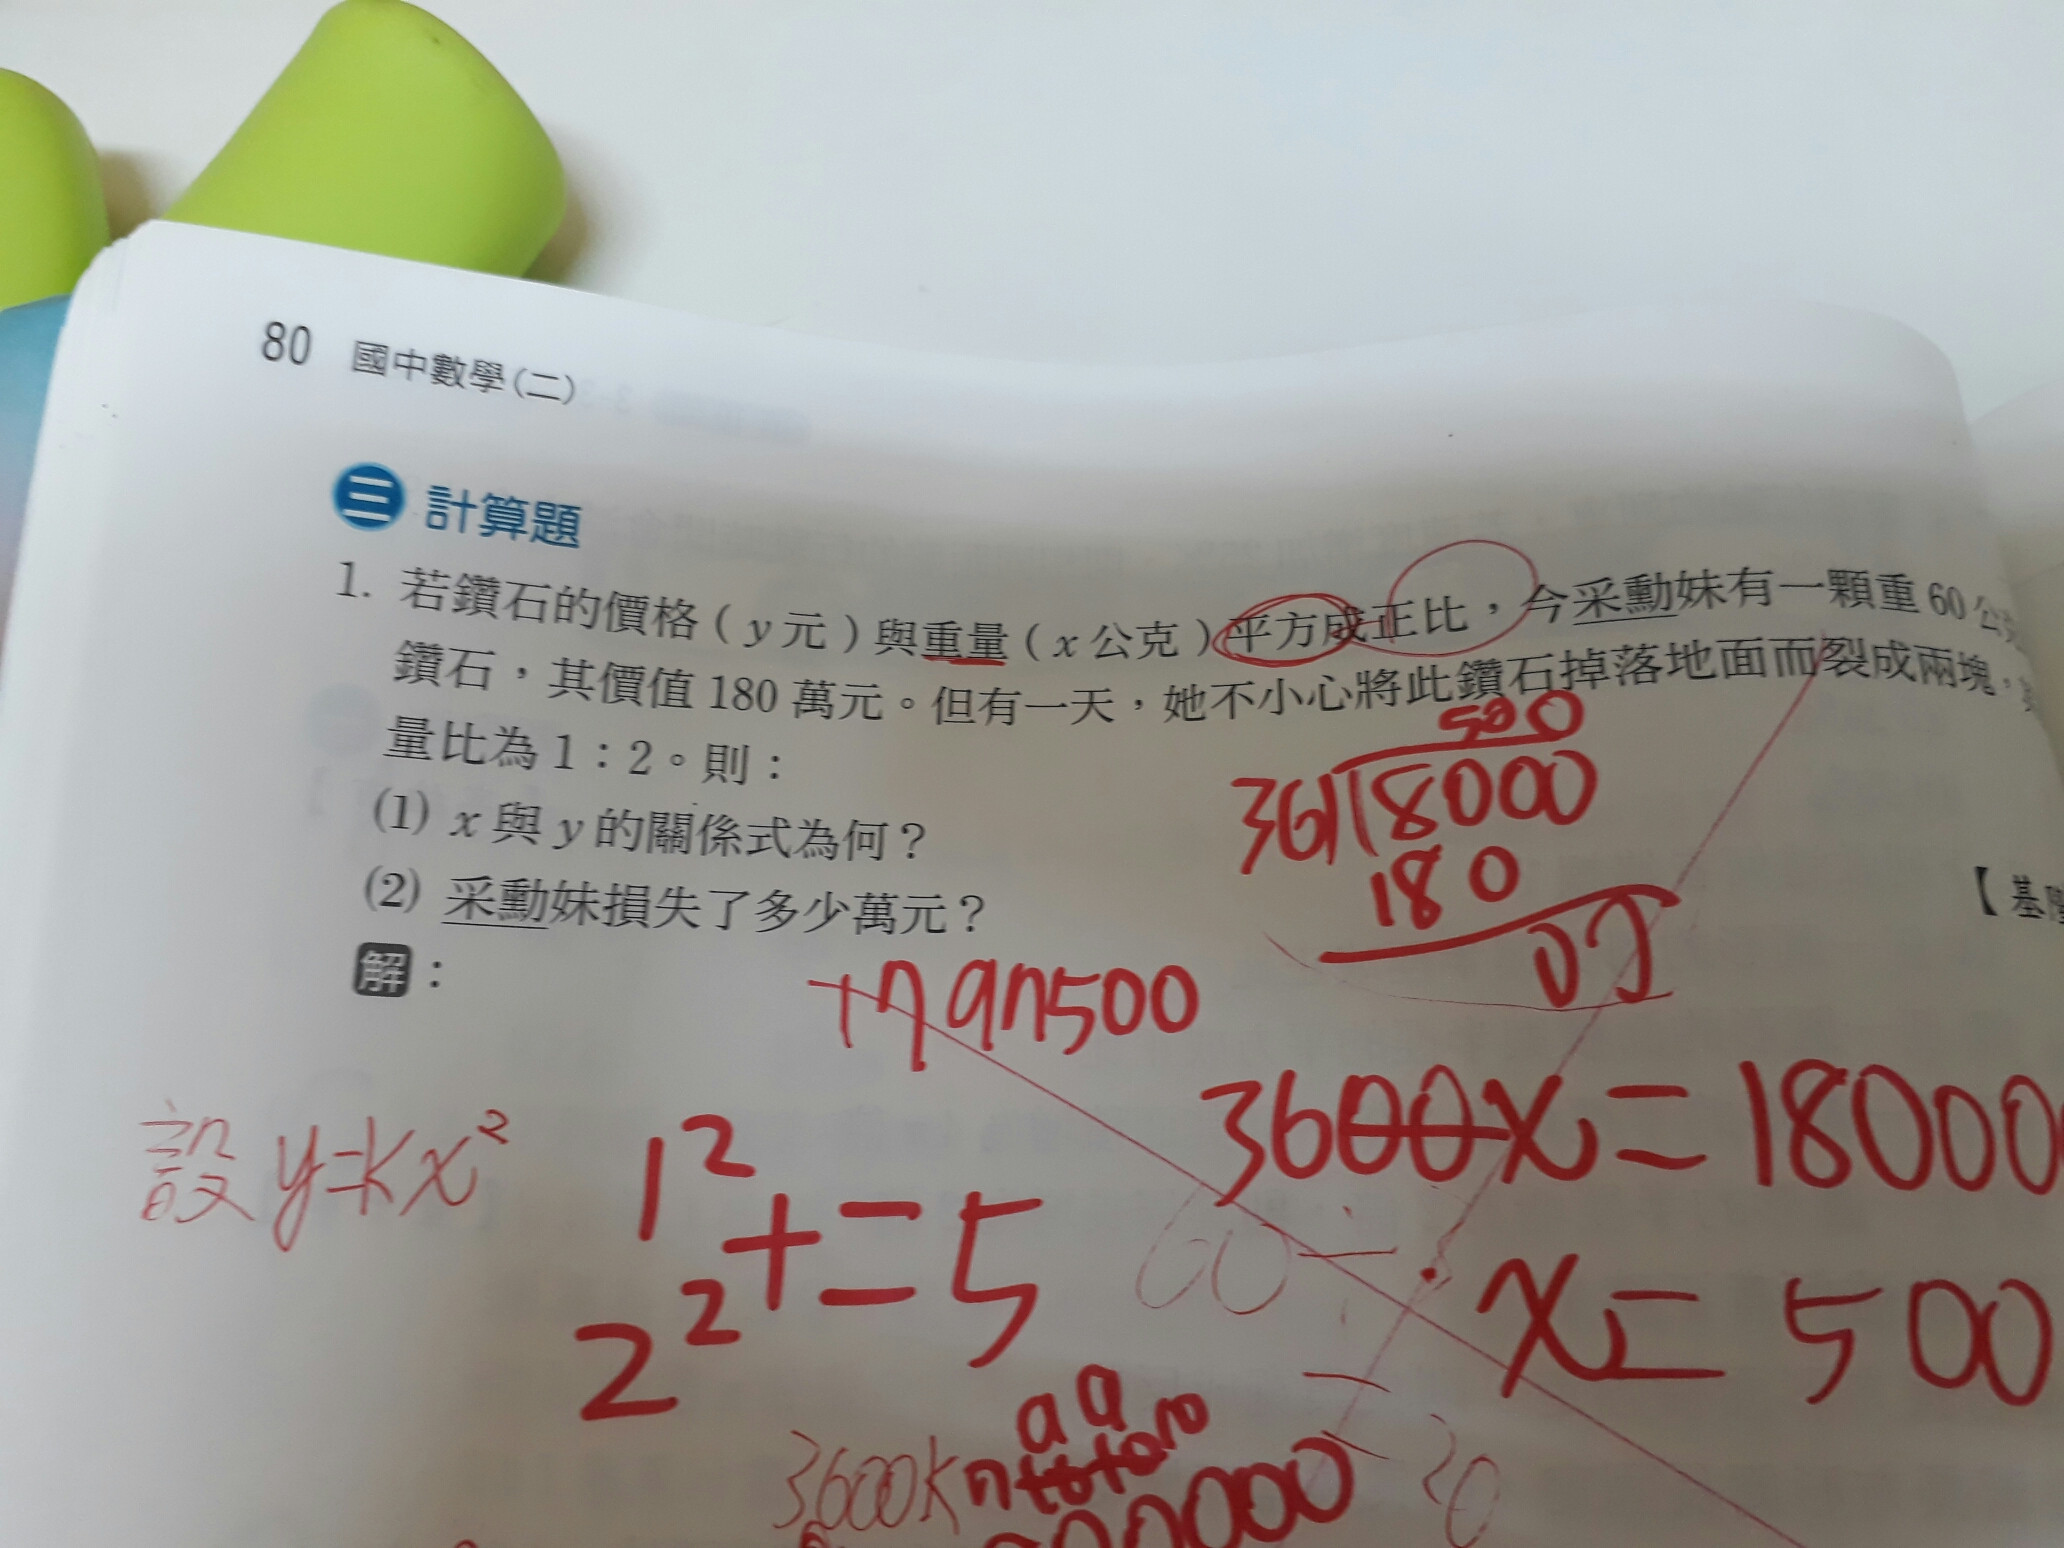 80 國中數學(二)
三 計算題
1. 若鑽石的價格(y元)與重量(x公克)平方成正比，今采勳妹有一顆重60公克
鑽石，其價值180萬元。但有一天，她不小心將此鑽石掉落地面而裂成兩塊，
量比為1：2。則：
(1) x與y的關係式為何？
(2) 采勳妹損失了多少萬元？
【基隆
解：
500
36 18000
180
00
500
3600x=18000
設 y=kx²
1²
+=5
2²
60÷
x=500
=20
3600k
000000